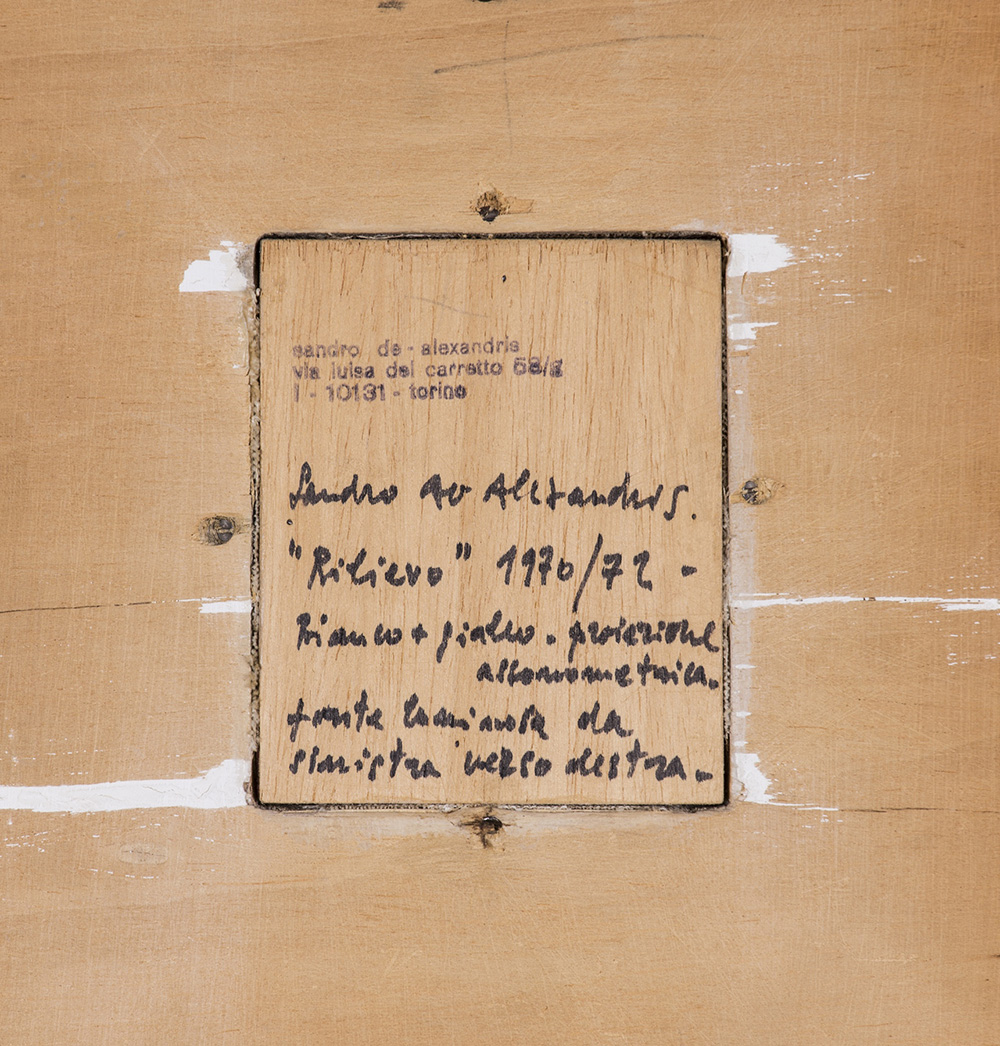 sandro de-alexandris
via luisa del carretto 58/g
I - 10131 - torino
Sandro De Alexandris.
"Rilievo" 1970/72 -
Bianco + giallo - proiezione
assonometrica.
fonte luminosa da
sinistra verso destra.